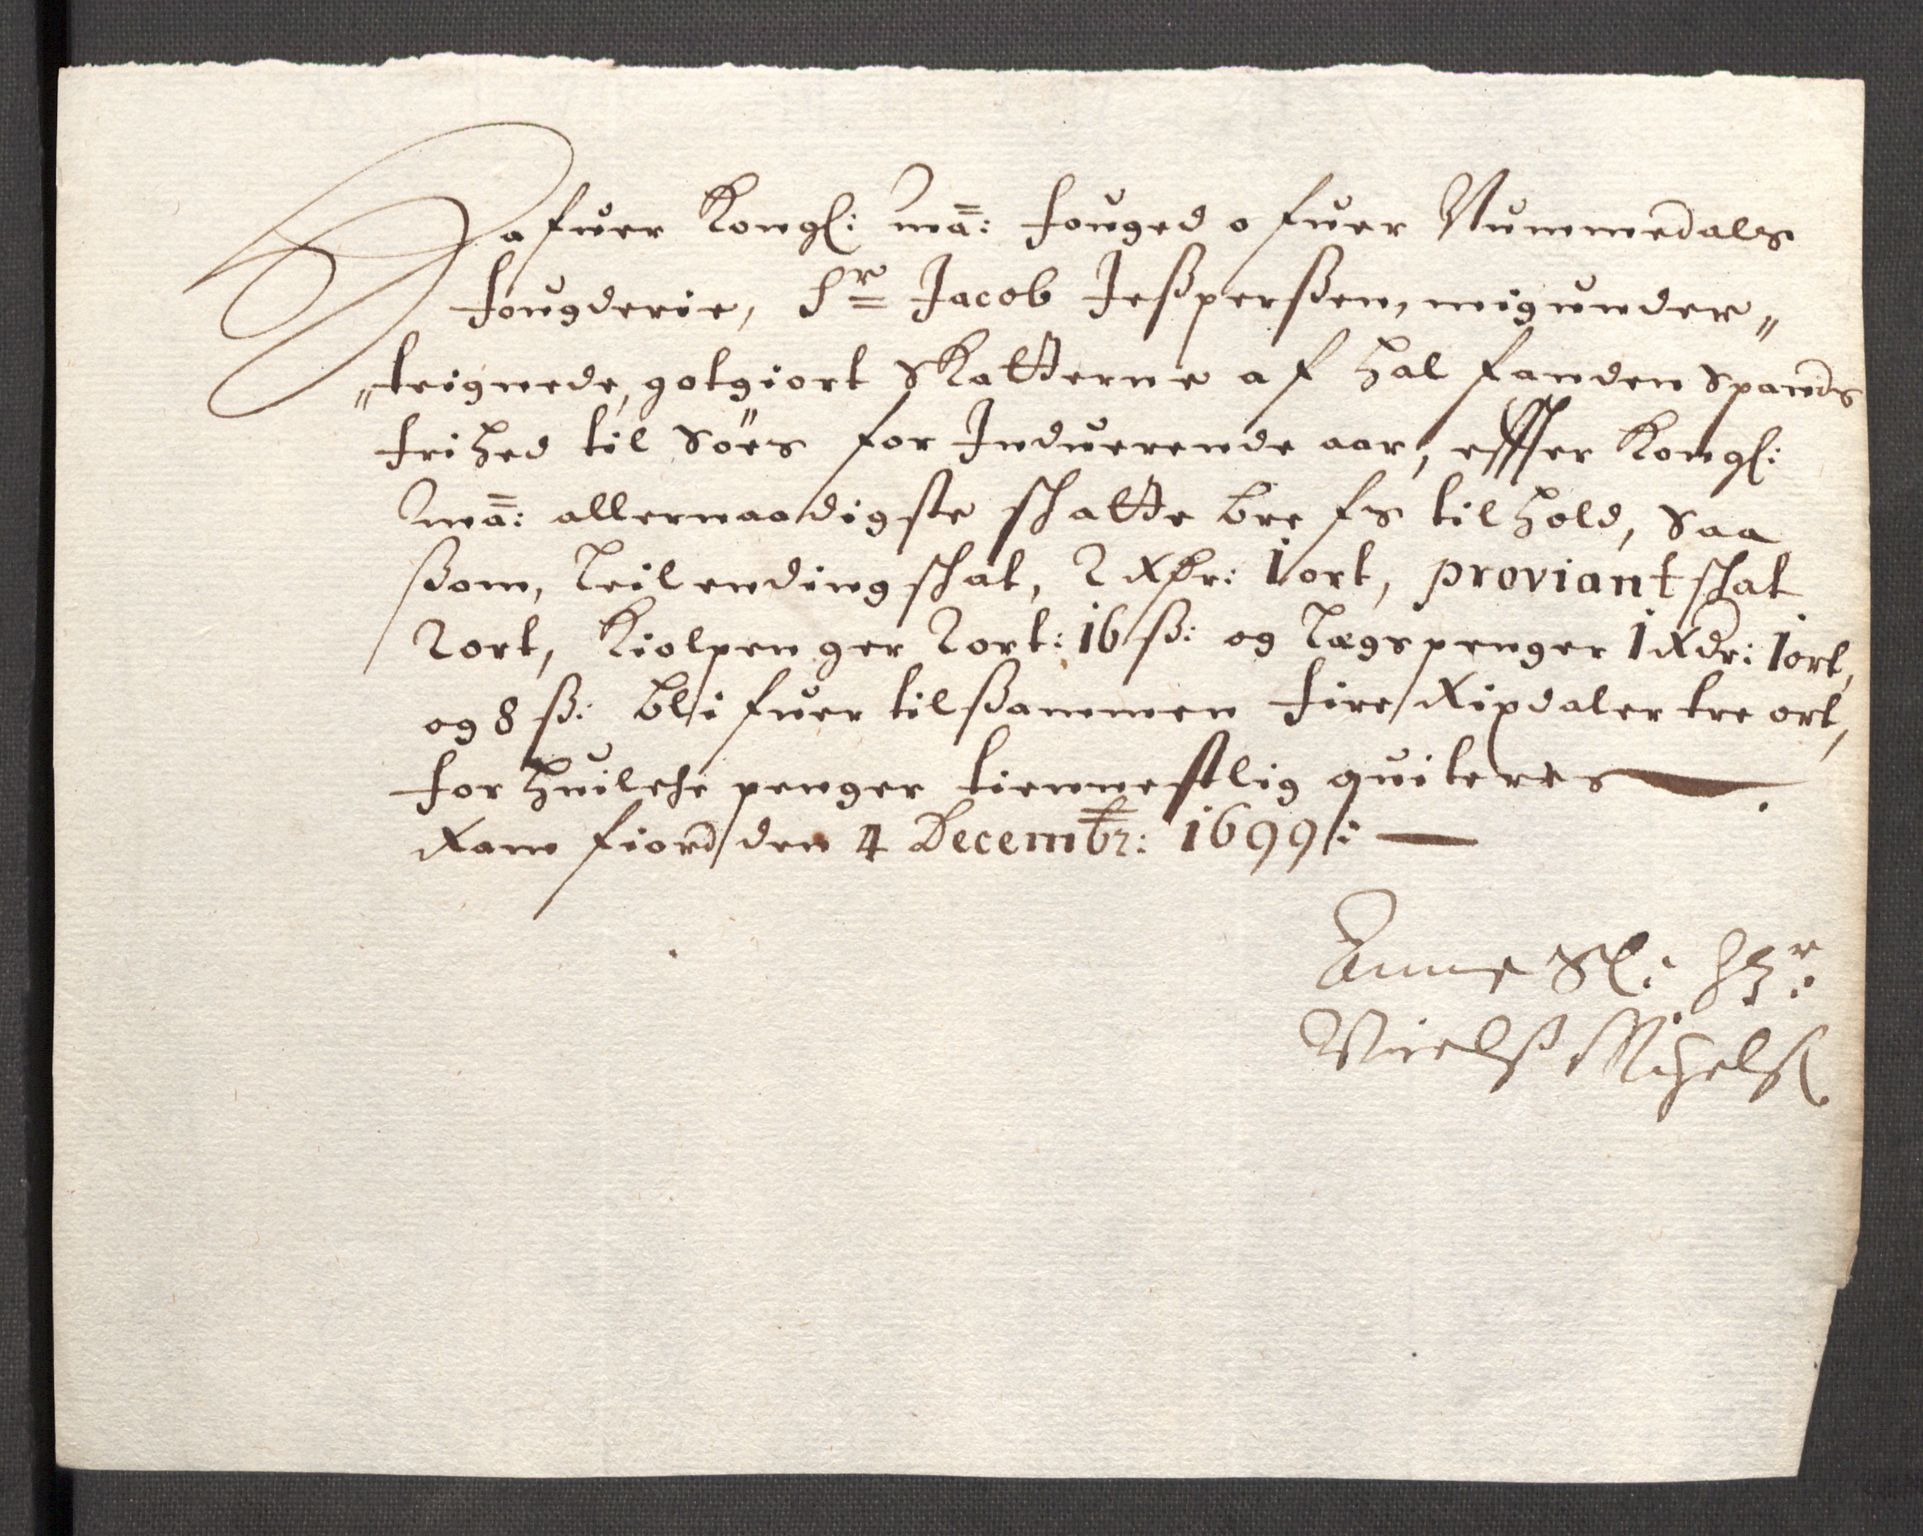 Hafuer Kongl: Mā: fouged ofuer Nummedals
fougderie, Sr Jacob Jeßperßen, mig under„
„teignede, gotgiort Skatterne af hal fanden Spands
frihed til Söes for Induerende aar, effter Kongl:
Mā: allernaadigste schatte brefs tilhold, Saa
ßom, Leilendingschat, 2 Rdr: 1 ort, proviantschat
2 ort, Kiolpenger 2 ort: 16 ß: og Lægspenger 1 Rdr: 1 ort,
og 8 ß: blifuer tilßammen fire Rixdaler tre ort,
for huilche penger tiennestlig quiteres
Ranfiord den 4 Decembr: 1699:
Anne Sl: Hr:
Nielß Michelß